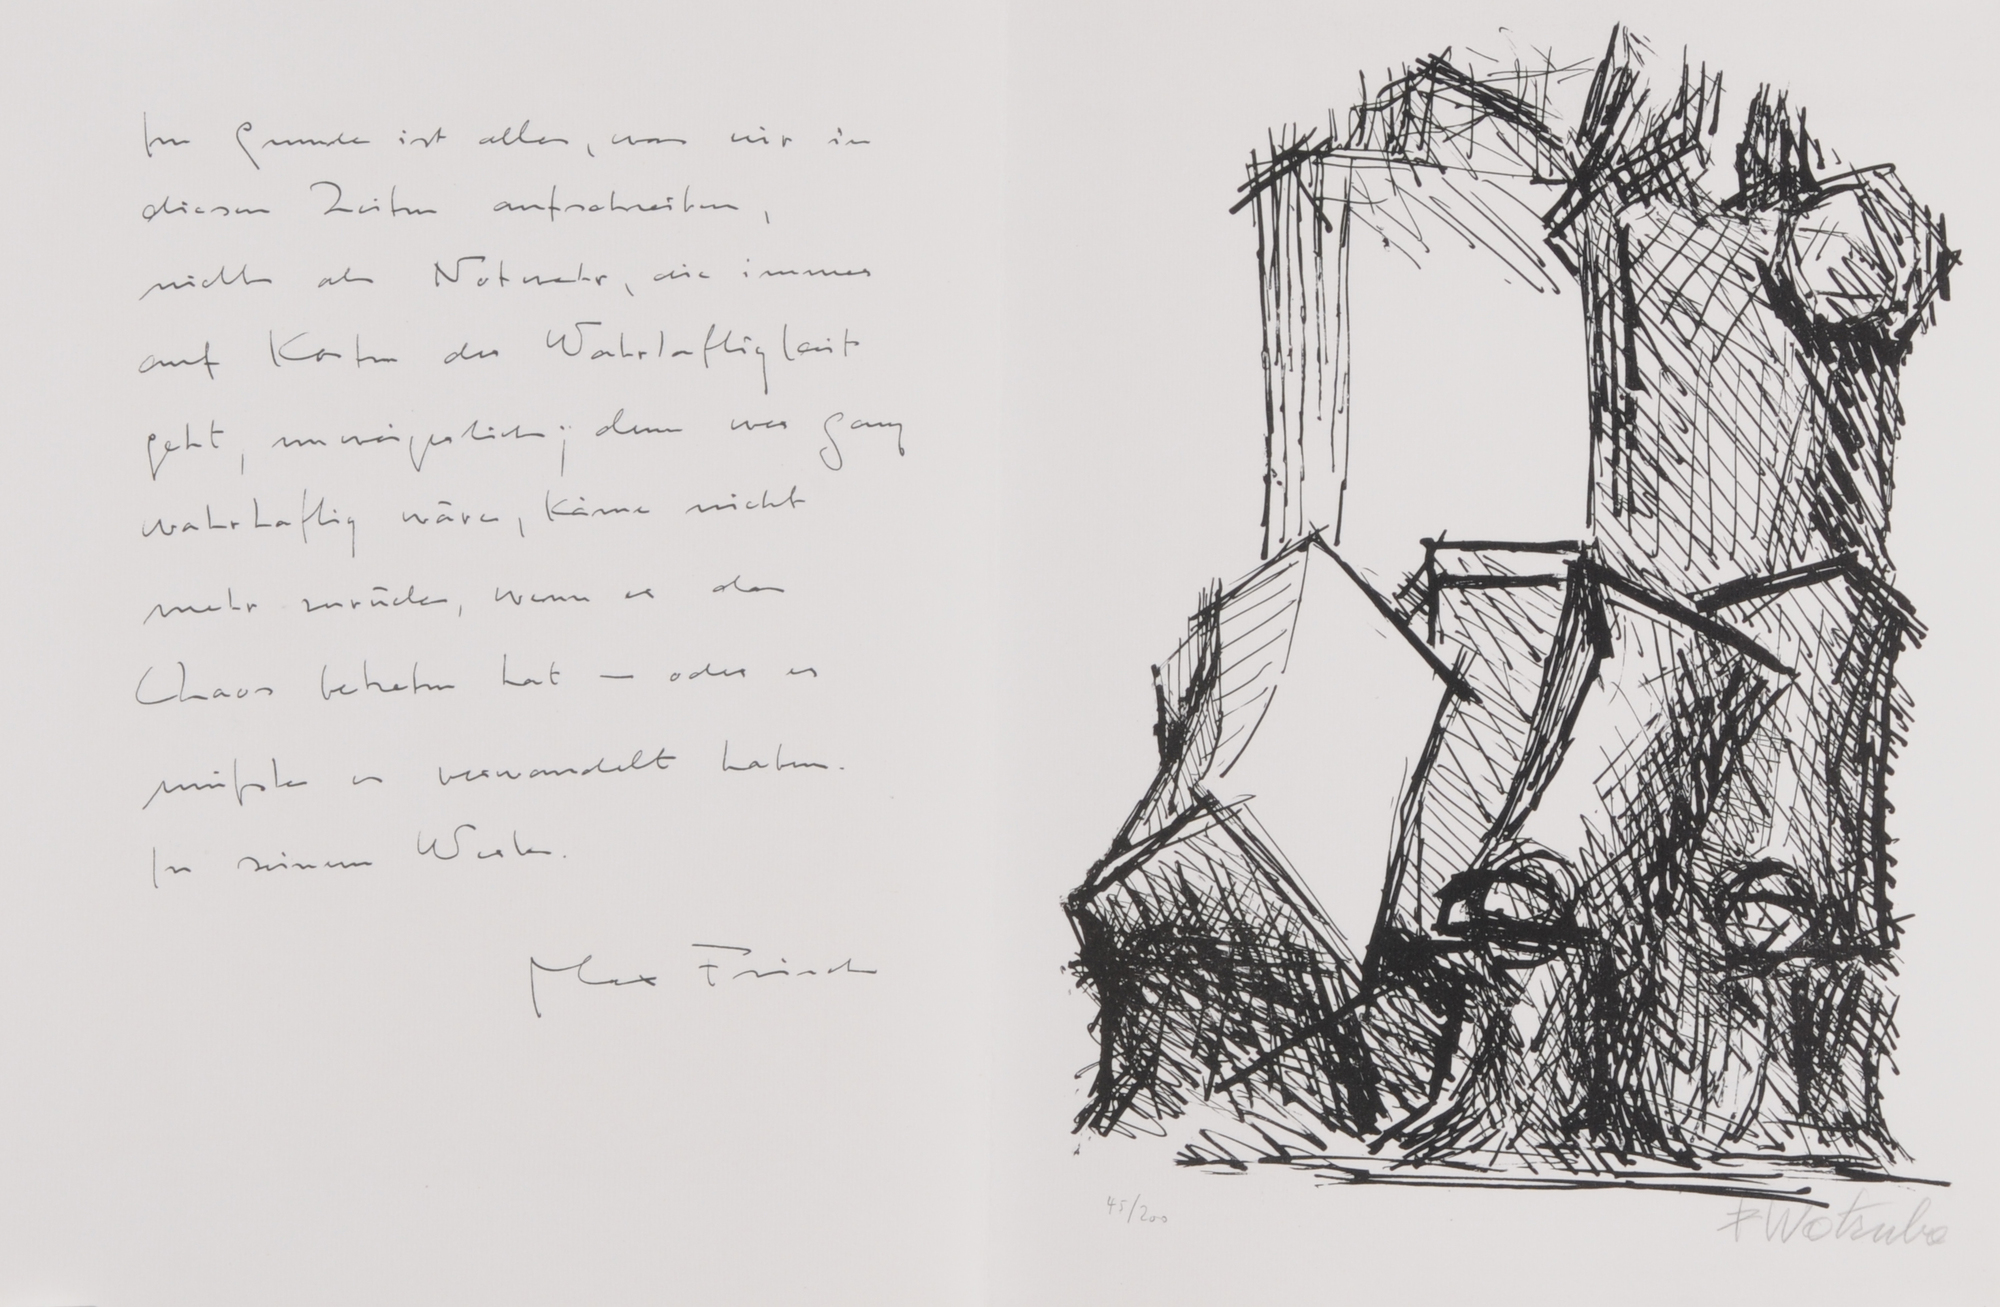 Im Grunde ist alles, was wir in
diesen Zeiten aufschreiben,
nichts als Notwehr, die immer
auf Kosten der Wahrhaftigkeit
geht, unweigerlich; denn wer ganz
wahrhaftig wäre, käme nicht
mehr zurück, wenn er das
Chaos betreten hat — oder er
müsste es verwandelt haben.
In seinem Werk.
Max Frisch
45/200
F Wotruba